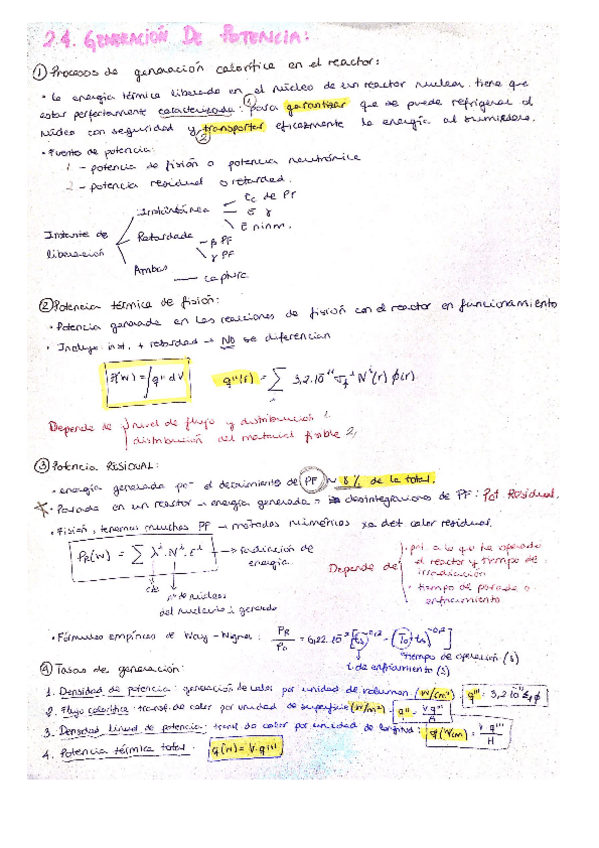 2.4. GENERACIÓN DE POTENCIA:
① Procesos de generación calorífica en el reactor:
• la energía térmica liberada en el núcleo de un reactor nuclear tiene que
estar perfectamente caracterizada: para ① garantizar que se puede refrigerar el
núcleo con seguridad y transportar ② eficazmente la energía al sumidero.
• Fuente de potencia:
1 - potencia de fisión o potencia neutrónica
2 - potencia residual o retardada.
Instante de liberación
Instantánea
Ec de PF
E γ
E ninm.
Retardada
β PF
γ PF
Ambas — captura
② Potencia térmica de fisión:
• Potencia generada en las reacciones de fisión con el reactor en funcionamiento
• Incluye inst. + retardad → NO se diferencian
P(W) = ∫ q''' dV
q'''(r) = Σ 3,2·10⁻¹¹ σf^i N^i(r) φ(r)
Depende de
nivel de flujo y distribución 1
distribución del material fisible 2
③ Potencia RESIDUAL:
• energía generada por el decaimiento de PF ~ 8% de la total.
* • Parada en un reactor → energía generada → desintegraciones de PF: Pot Residual.
• Fisión, tenemos muchos PF → métodos numéricos xa det calor residual.
PR(W) = Σ λ^i · N^i · E^i → radiación de energía
cte
nº de núcleos
del nucleido i generado
Depende de
• pot. a la que ha operado
el reactor y tiempo de
irradiación
• tiempo de parada o
enfriamiento
• Fórmula empírica de Way-Wigner: PR/P0 = 6,22·10⁻² [ts^-0,2 - (T0+ts)^-0,2]
tiempo de operación (s)
t. de enfriamiento (s)
④ Tasas de generación:
1. Densidad de potencia: generación de calor por unidad de volumen (W/cm³) q''' = 3,2·10⁻¹¹ Σf φ
2. Flujo calorífico: transf. de calor por unidad de superficie (W/m²) q'' = V·q'''/A
3. Densidad lineal de potencia: transf de calor por unidad de longitud: q'(W/cm) = V·q'''/H
4. Potencia térmica total q(W) = V·q'''